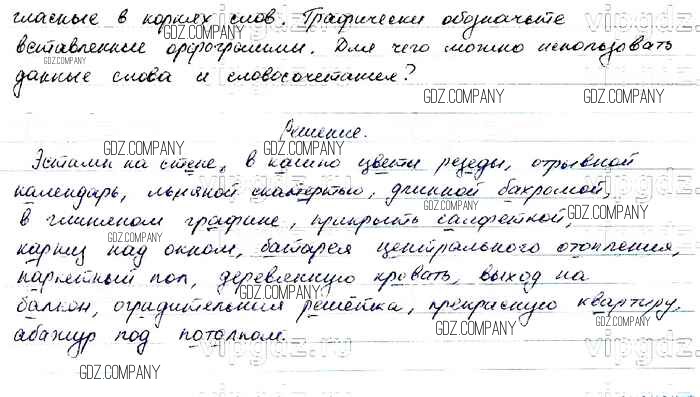 гласные в корнях слов. Графически обозначьте
вставленные орфограммы. Для чего можно использовать
данные слова и словосочетания?
Решение.
Эстамп на стене, в кашпо цветы резеды, отрывной
календарь, льняной скатертью, длинной бахромой,
в глиняном графине, прикрыть салфеткой,
карниз над окном, батарея центрального отопления,
паркетный пол, деревянную кровать, выход на
балкон, оградительная решётка, прекрасную квартиру,
абажур под потолком.
GDZ.COMPANY
vipgdz.ru